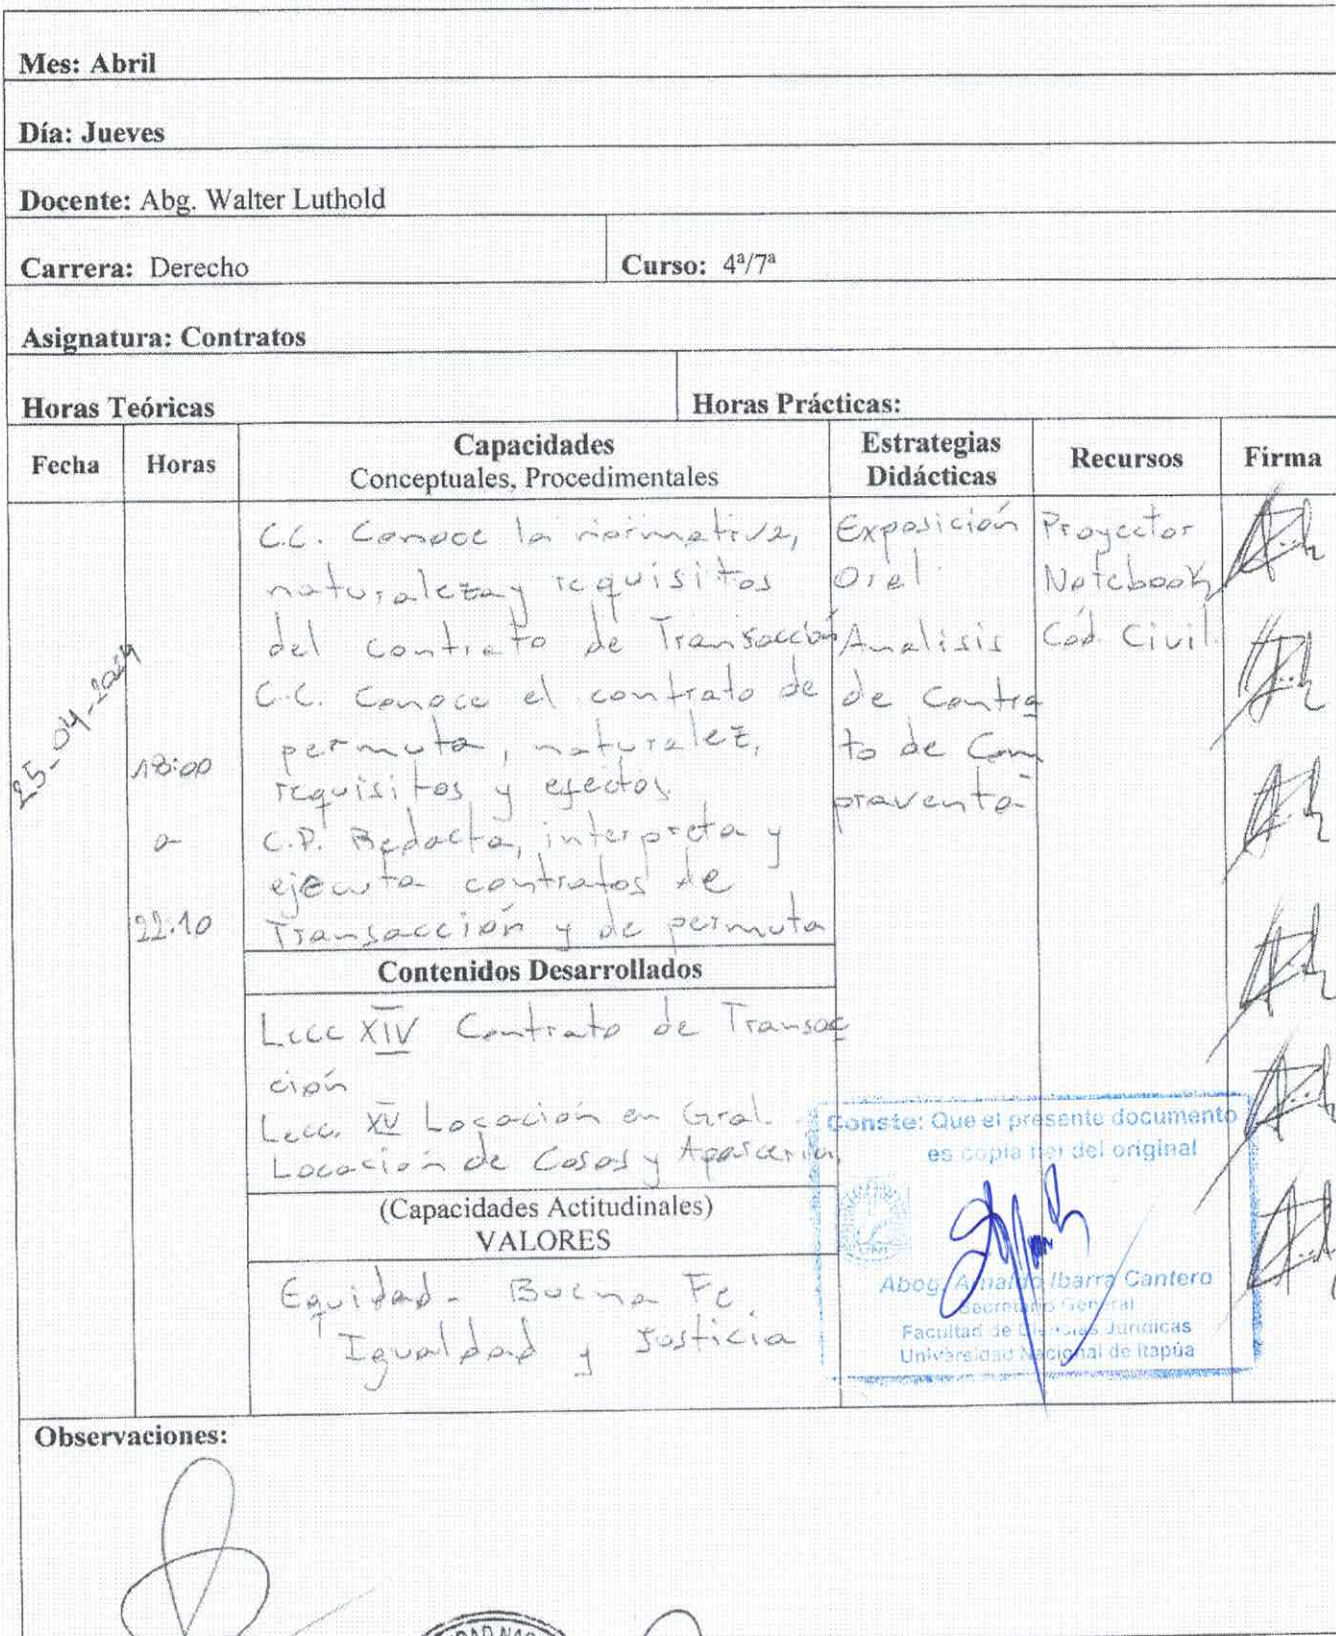 Mes: Abril
Día: Jueves
Docente: Abg. Walter Luthold
Carrera: Derecho
Curso: 4ª/7ª
Asignatura: Contratos
Horas Teóricas
Horas Prácticas:
Fecha
Horas
Capacidades
Conceptuales, Procedimentales
Estrategias
Didácticas
Recursos
Firma
25-04-2024
18:00
a
22:10
C.C. Conoce la normativa,
naturaleza y requisitos
del contrato de Transacción
C.C. Conoce el contrato de
permuta, naturalez,
requisitos y efectos
C.P. Redacta, interpreta y
ejecuta contratos de
Transacción y de permuta
Exposición
Oral.
Analisis
de Contra
to de Com
praventa
Proyector
Notebook
Cód. Civil.
Contenidos Desarrollados
Lecc XIV Contrato de Transac
ción
Lecc. XV Locación en Gral. -
Locación de Cosas y Aparcería
(Capacidades Actitudinales)
VALORES
Equidad - Buena Fe,
Igualdad y Justicia
Conste: Que el presente documento
es copia fiel del original
Abog. Arnaldo Ibarra Cantero
Secretario General
Facultad de Ciencias Jurídicas
Universidad Nacional de Itapúa
Observaciones: